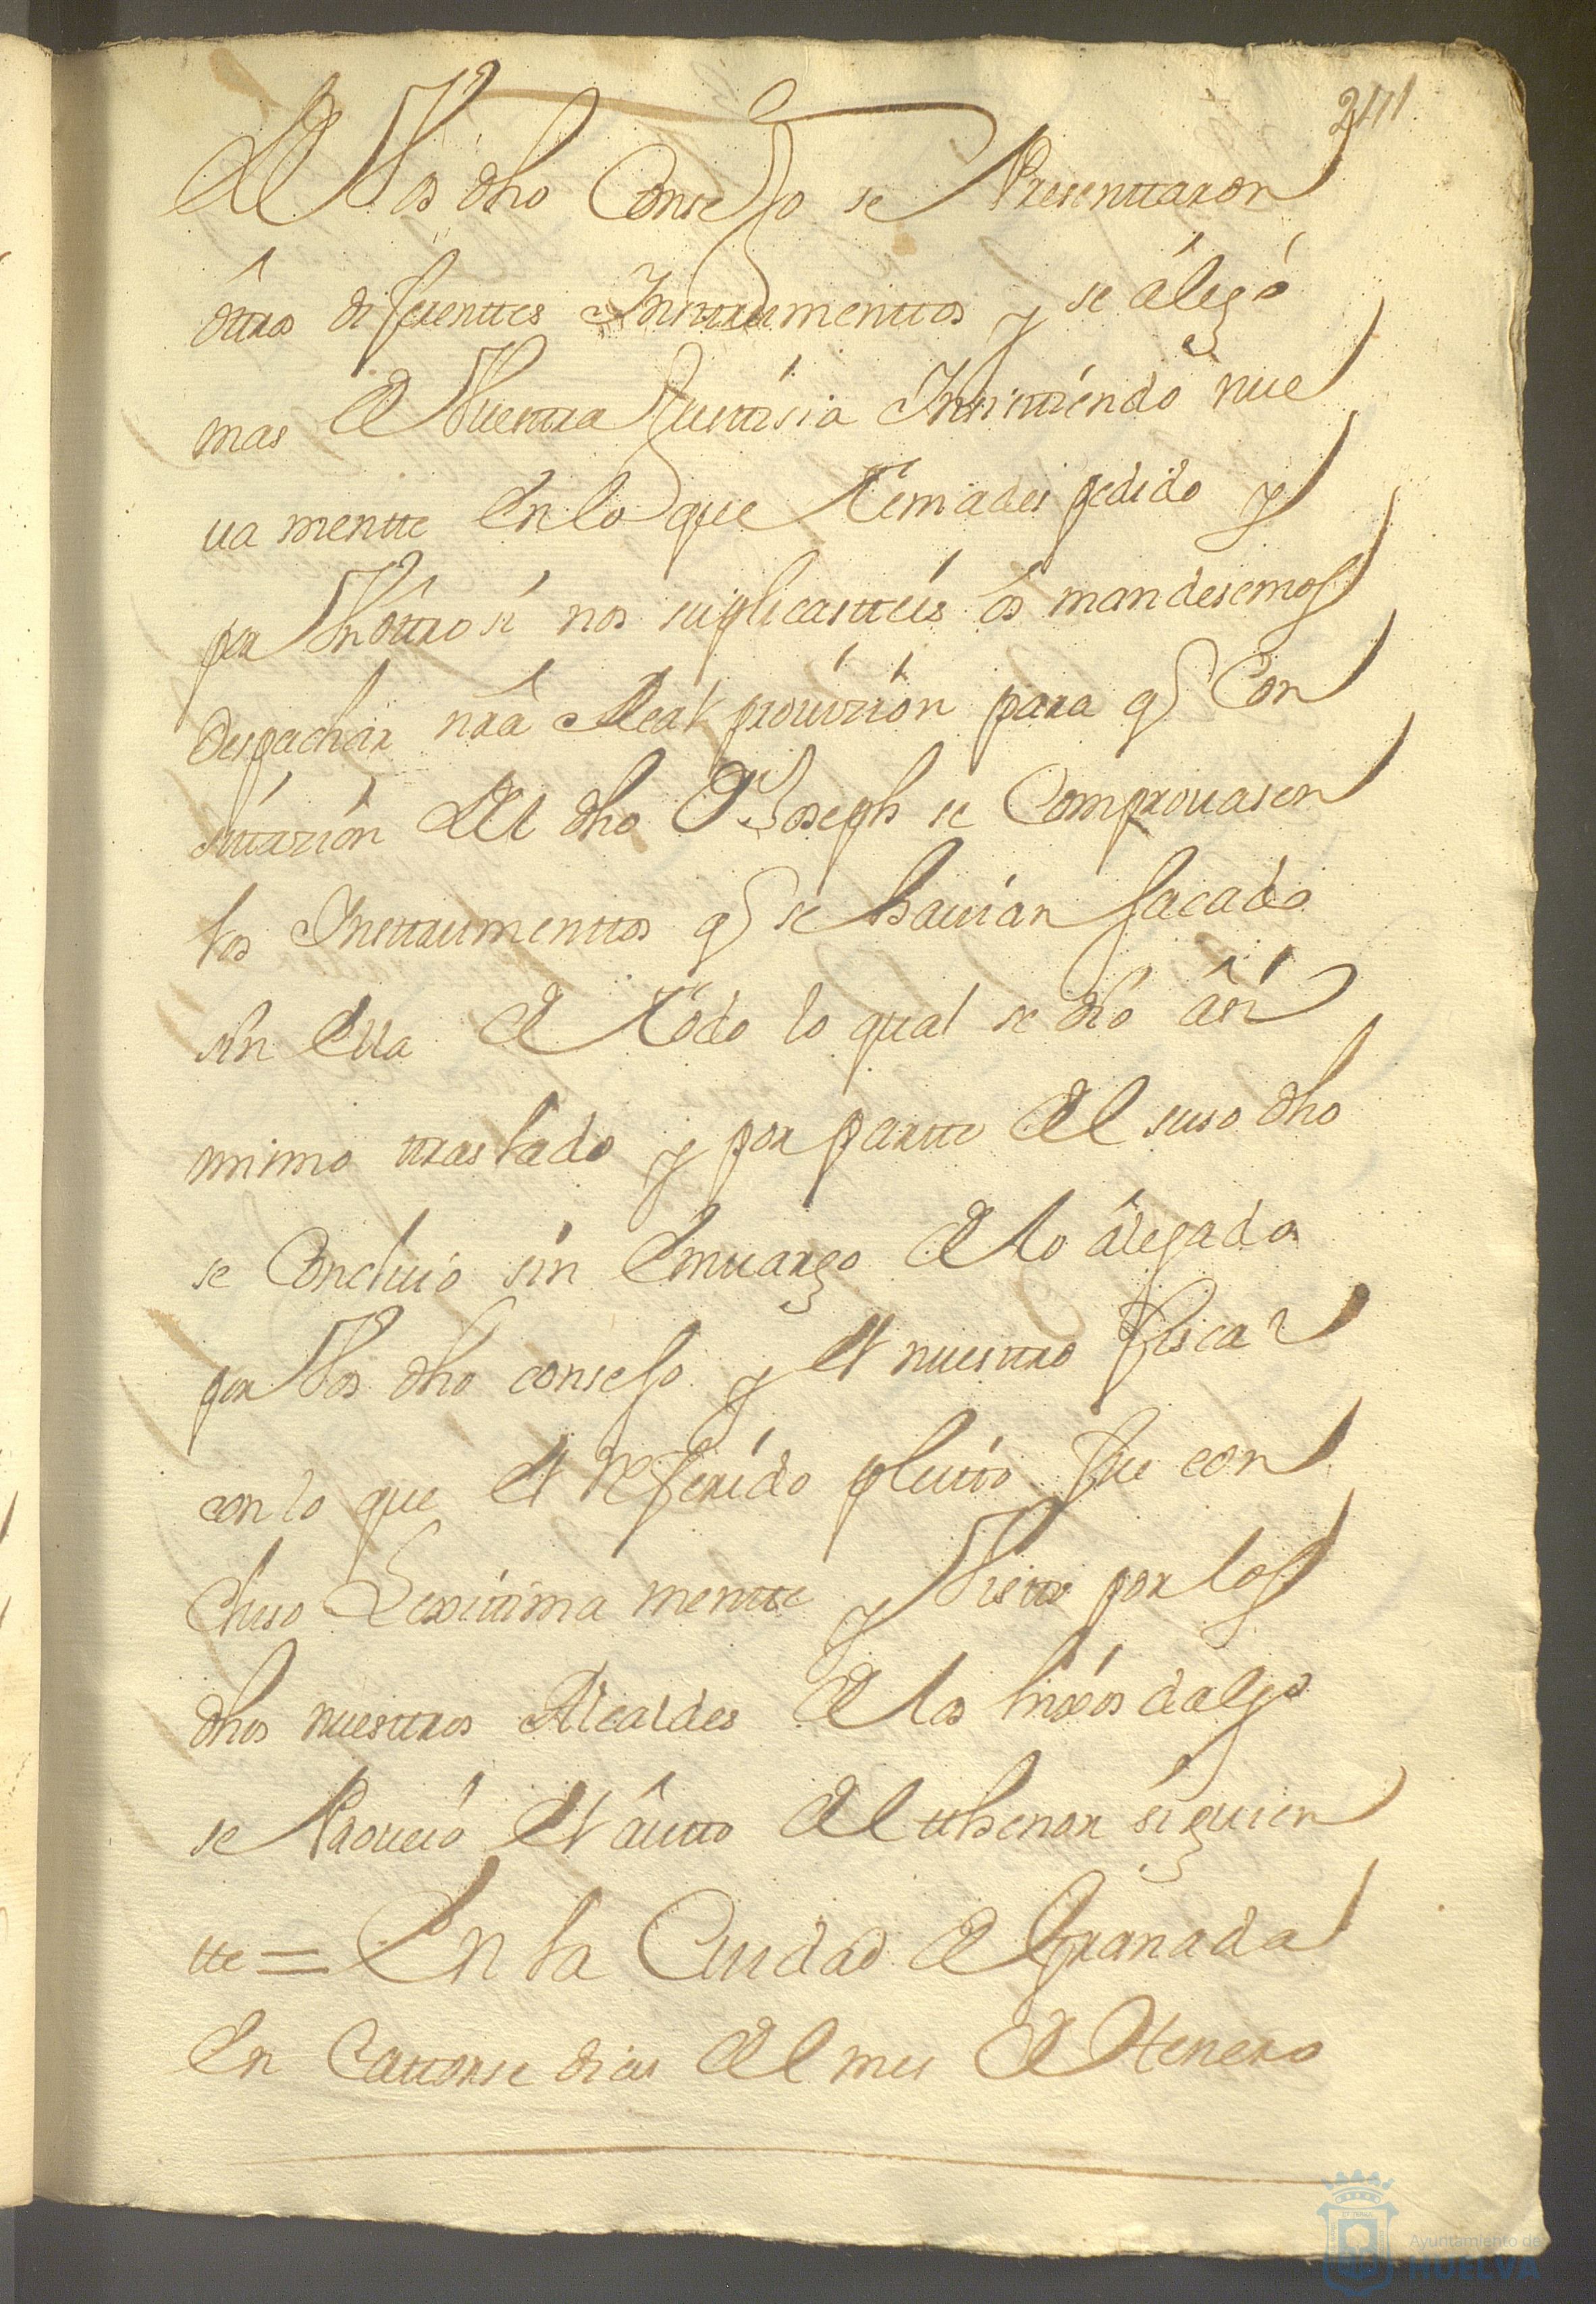 241
de Vos dho Consejo se Presenttaron
ôttros diferenttes Ynsttrumenttos y se álegó
mas de Vuesttra Justtisia Ynsisttiendo nue
ua mentte en lo que teniades pedido y
por Un ôttro si nos suplicastteis ôs mandesemos
despachar nrâ Real prouizion para q Con
sittazion del dho Dn Joseph se Comprouasen
los Ynsttrumenttos q se hauian sacado
sin ella de todo lo qual se dió âsi
mismo ttraslado y por partte del suso dho
se Concluio sin Embargo de lo álegado
por Vos dho consejo y el nuesttro fiscal
con lo que el referido pleitto fue con
cluso Lexittima mentte y Vistto por los
dhos nuesttros Alcaldes de los hixos dalgo
se Proueió el âutto del tthenor siguien
tte = En la Ciudad de Granada
En Cattorse dias del mes de Henero
Ayuntamiento de
HUELVA